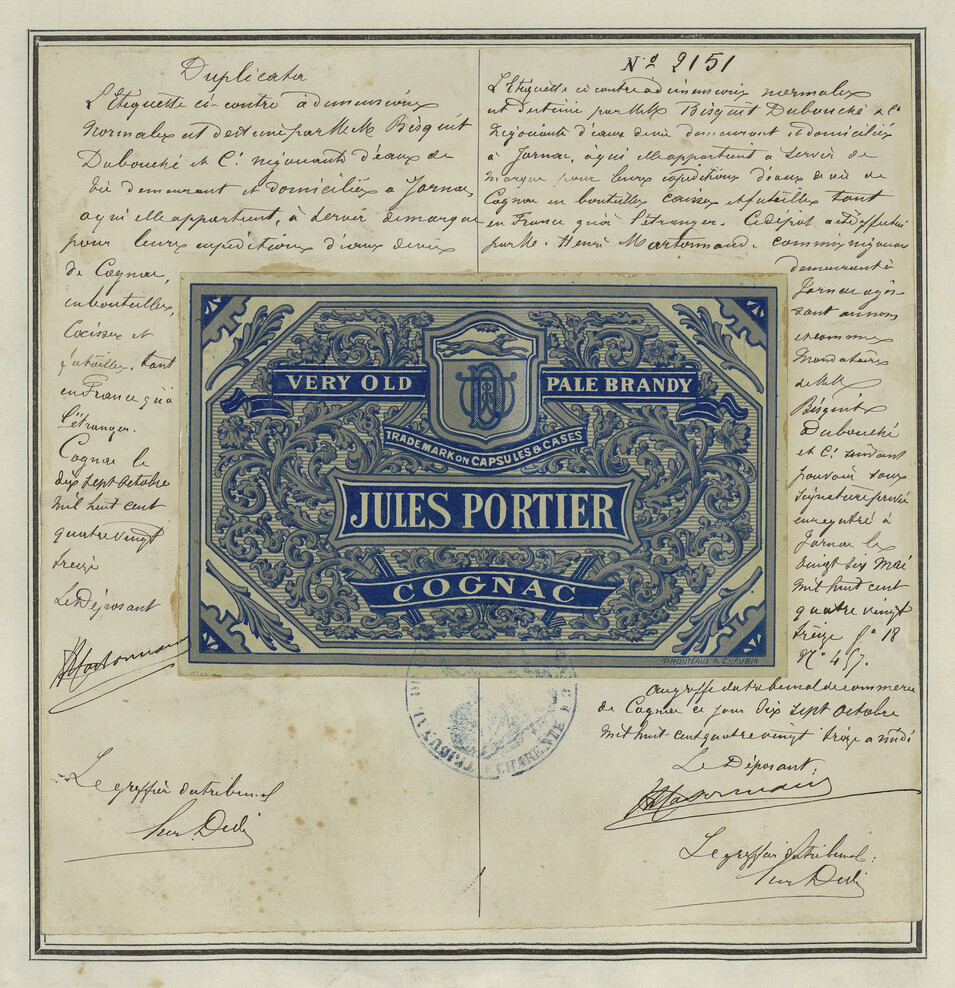 Duplicata
L'Etiquette ci-contre à dimensions
normales est destinée par M.M. Bisquit
Dubouché et Cie négociants d'eaux de
vie demeurant et domiciliés à Jarnac,
à qui elle appartient, à servir de marque
pour leurs expéditions d'eaux de vie
de Cognac,
en bouteilles,
Caisses et
futailles, tant
en France qu'à
l'étranger.
Cognac le
dix sept octobre
mil huit cent
quatre vingt
treize
Le Déposant
Le greffier du tribunal
No 2151
L'Etiquette ci contre à dimensions normales
est destinée par M.M. Bisquit Dubouché & Cie
négociants d'eaux de vie demeurant et domiciliés
à Jarnac, à qui elle appartient à servir de
marque pour leurs expéditions d'eaux de vie de
Cognac en bouteilles caisses et futailles tant
en France qu'à l'étranger. Ce dépôt a été effectué
par M. Henri Martonnaud. commis négociant
demeurant à
Jarnac agis-
sant au nom
et comme
Mandataire
de MM
Bisquit
Dubouché
et Cie suivant
pouvoir sous
signature privée
enregistré à
Jarnac le
vingt six Mai
mil huit cent
quatre vingt
treize fo 18
No 457.
Au greffe du tribunal de commerce
de Cognac ce jour dix sept octobre
mil huit cent quatre vingt treize à midi
Le Déposant:
Le greffier du tribunal:
VERY OLD PALE BRANDY
TRADE MARK ON CAPSULES & CASES
JULES PORTIER
COGNAC
PROUTEAUX & CHAUBIN